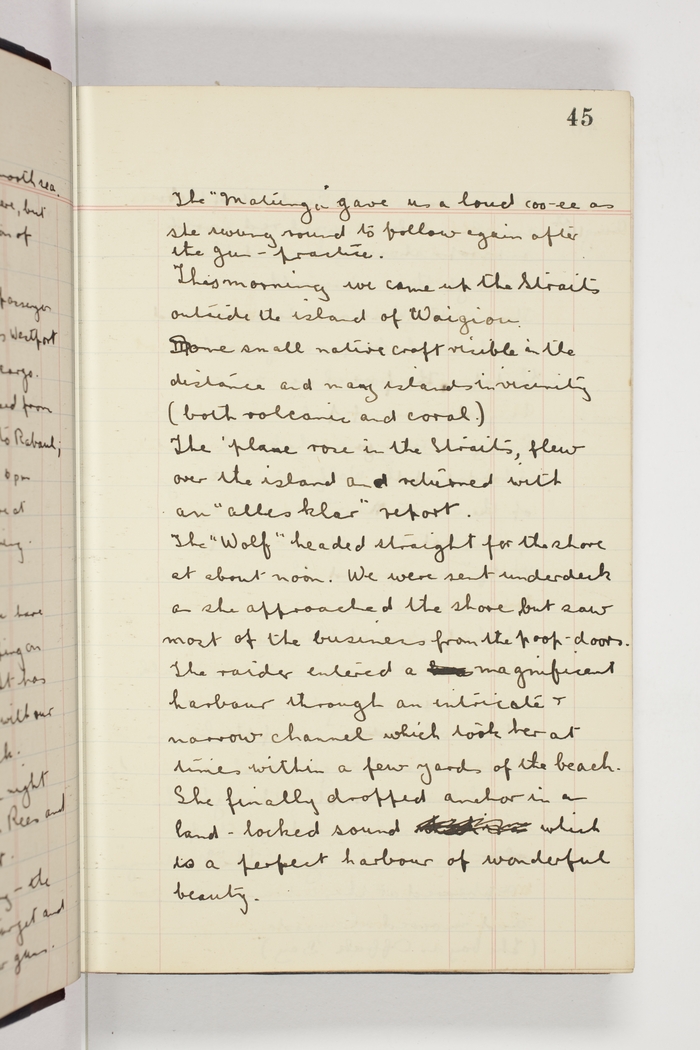 45
north sea.
The "Matunga" gave us a loud coo-ee as
she swung round to follow again after
the gun-practise.
This morning we came up the Straits
outside the island of Waigiou.
Some small native craft visible in the
distance and many islands in vicinity
(both volcanic and coral.)
The 'plane rose in the Straits, flew
over the island and returned with
an "alles klar" report.
The "Wolf" headed straight for the shore
at about noon. We were sent underdeck
as she approached the shore, but saw
most of the business from the poop-doors.
The raider entered a magnificent
harbour through an intricate +
narrow channel which took her at
times within a few yards of the beach.
She finally dropped anchor in a
land-locked sound which
is a perfect harbour of wonderful
beauty.
but
passenger
Westport
cargo.
from
to Rabaul;
have
has
night
Rees and
the
target and
guns.